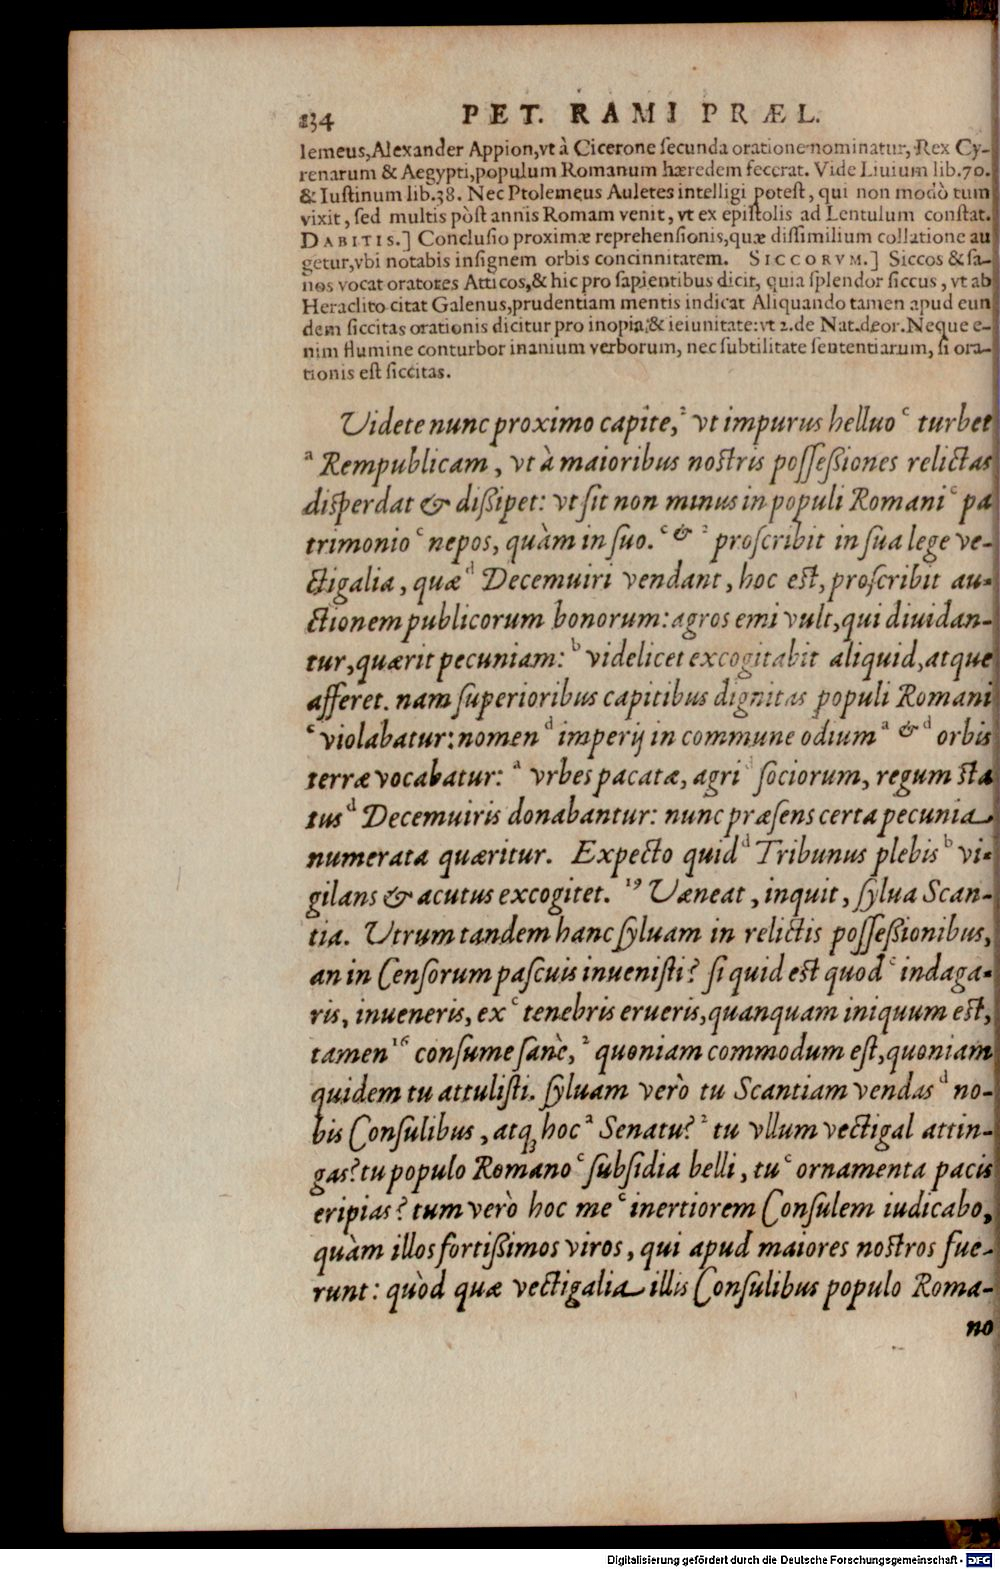 134 PET. RAMI PRÆL.
lemeus,Alexander Appion,vt à Cicerone ſecunda oratione nominatur, Rex Cy-
renarum & Aegypti,populum Romanum hæredem fecerat. Vide Liuium lib.70.
& Iuſtinum lib.38. Nec Ptolemeus Auletes intelligi poteſt, qui non modò tum
vixit, ſed multis pòſt annis Romam venit, vt ex epiſtolis ad Lentulum conſtat.
DABITIS.] Concluſio proximæ reprehenſionis,quæ diſſimilium collatione au
getur,vbi notabis inſignem orbis concinnitatem. SICCORVM.] Siccos & ſa-
nos vocat oratores Atticos,& hic pro ſapientibus dicit, quia ſplendor ſiccus, vt ab
Heraclito citat Galenus,prudentiam mentis indicat Aliquando tamen apud eun
dem ſiccitas orationis dicitur pro inopia,& ieiunitate:vt 2.de Nat.deor.Neque e-
nim flumine conturbor inanium verborum, nec ſubtilitate ſententiarum, ſi ora-
tionis eſt ſiccitas.
Videte nunc proximo capite,² vt impurus helluo ᶜ turbet
ᵃ Rempublicam, vt à maioribus noſtris poſſeßiones relictas
diſperdat & dißipet: vt ſit non minus in populi Romani ᶜ pa
trimonio ᶜ nepos, quàm in ſuo. ᶜ & ² proſcribit in ſua lege ve-
ctigalia, quæ ᵈ Decemuiri vendant, hoc eſt, proſcribit au-
ctionem publicorum bonorum: agros emi vult,qui diuidan-
tur,quærit pecuniam: ᵇ videlicet excogitabit aliquid,atque
afferet. nam ſuperioribus capitibus dignitas populi Romani
ᶜ violabatur: nomen ᵈ imperij in commune odium ᵃ & ᵈ orbis
terræ vocabatur: ᵃ vrbes pacatæ, agri ᵈ ſociorum, regum ſta
tus ᵈ Decemuiris donabantur: nunc præſens certa pecunia
numerata quæritur. Expecto quid ᵈ Tribunus plebis ᵇ vi-
gilans & acutus excogitet. ¹⁹ Væneat, inquit, ſylua Scan-
tia. Vtrum tandem hanc ſyluam in relictis poſſeßionibus,
an in Cenſorum paſcuis inueniſti? ſi quid eſt quod ᶜ indaga-
ris, inueneris, ex ᶜ tenebris erueris,quanquam iniquum eſt,
tamen ¹⁶ conſume ſanè, ² quoniam commodum eſt,quoniam
quidem tu attuliſti. ſyluam verò tu Scantiam vendas ᵈ no-
bis Conſulibus, atq; hoc ᵃ Senatu? ² tu vllum vectigal attin-
gas? tu populo Romano ᶜ ſubſidia belli, tu ᶜ ornamenta pacis
eripias? tum verò hoc me ᶜ inertiorem Conſulem iudicabo,
quàm illos fortißimos viros, qui apud maiores noſtros fue-
runt: quòd quæ vectigalia illis Conſulibus populo Roma-
no
Digitalisierung gefördert durch die Deutsche Forschungsgemeinschaft - DFG